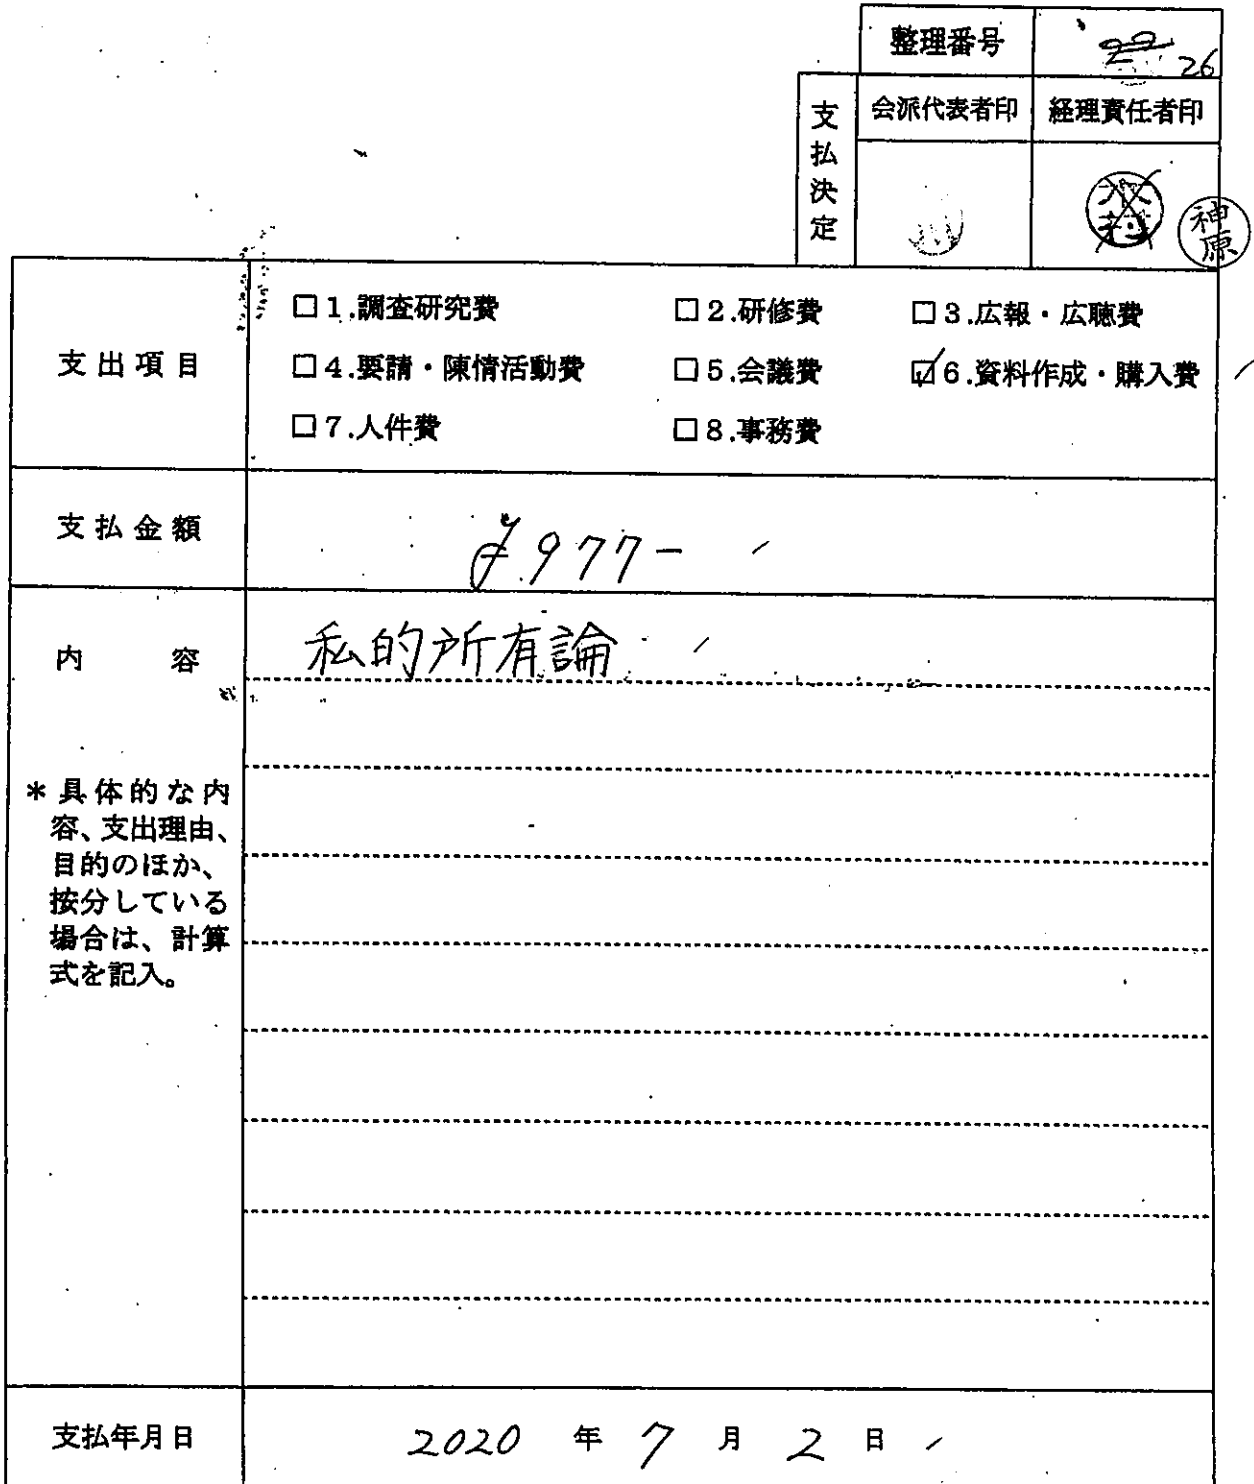 整理番号 22 26
支払決定 会派代表者印 経理責任者印
神原
支出項目
□1.調査研究費 □2.研修費 □3.広報・広聴費
□4.要請・陳情活動費 □5.会議費 ☑6.資料作成・購入費
□7.人件費 □8.事務費
支払金額 ¥977-
内容 私的所有論
*具体的な内
容、支出理由、
目的のほか、
按分している
場合は、計算
式を記入。
支払年月日 2020年7月2日